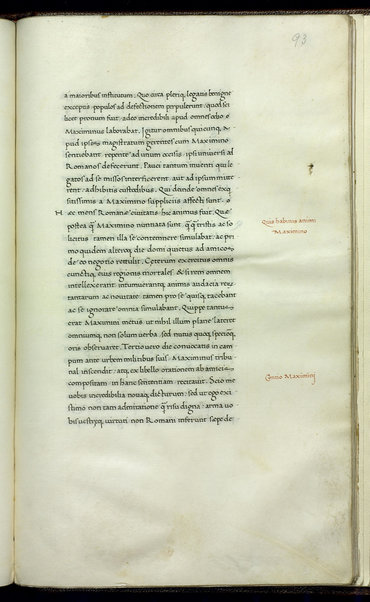 93
a maioribus institutum. Quo circa pleriq; legatis benigne
exceptis populos ad defectionem perpulerunt: quod sci
licet pronum fuit. adeo incredibili apud omnes odio
Maximinus laborabat. Igitur omnibus quicunq; a
pud ipsos magistratum gerentes cum Maximino
sentiebant repente ad unum occisis. ipsi universi ad
Romanos defecerunt. Pauci tantum inventi qui le
gatos ad se missos interficerent aut ad ipsum mitte
rent adhibitis custodibus. Qui deinde omnes exq
sitissimis a Maximino suppliciis affecti sunt.
H ec mens Romanæ civitatis: hic animus fuit. Quę
postea q̃ Maximino nuntiata sunt. q̃ q̃ tristis ac so
licitus: tamen illa se contemnere simulabat. ac pri
mo quidem alteroq; die domi quietus ad amicos
de eo negotio rettulit. Cęterum exercitus omnis
cunctiq; eius regionis mortales & si rem omnem
intellexerant: intumuerantq; animis audacia
tantarum ac novitate: tamen pro se quisq; tacebant
ac se ignorare omnia simulabant. Quippe tantus
erat Maximini metus ut nihil illum plane lateret
omniumq; non solum verba sed nutus quoq; speciesq;
oris observaret. Tertio vero die convocatis in cam
pum ante urbem militibus suis Maximinus tribu
nal inscendit: atq; ex libello orationem ab amicis
compositam in hanc sententiam recitavit. Scio me
vobis incredibilia novaq; dicturum: sed ut ego exi
stimo non tam admiratione q̃ risu digna: arma vo
bis uestręq; virtuti non Romani inferunt sæpe de
Quis habitus animi
Maximino
Contio Maximini